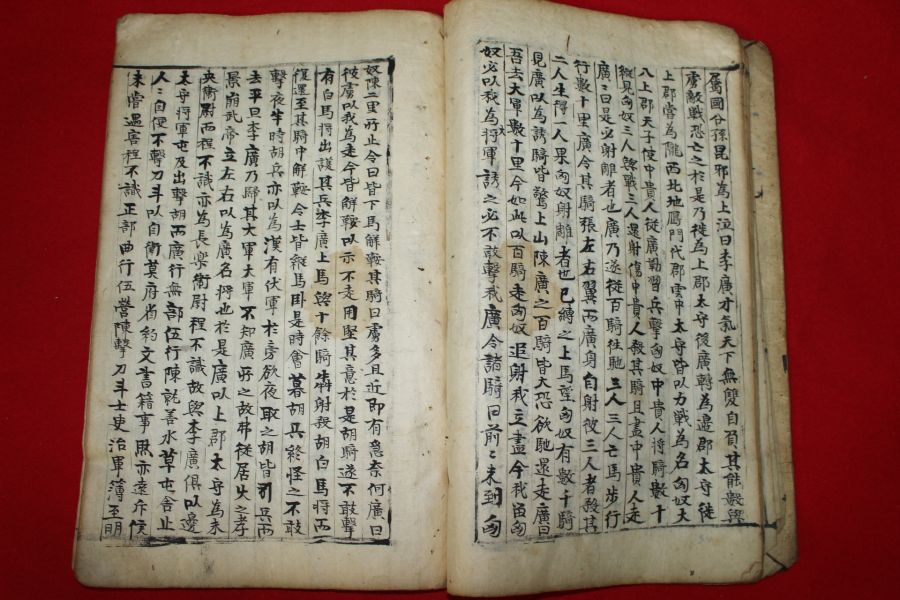 屬國公孫昆邪為上泣曰李廣才氣天下無雙自負其能數與
虜敵戰恐亡之於是乃徙為上郡太守後廣轉為邊郡太守徙
上郡嘗為隴西北地鴈門代郡雲中太守皆以力戰為名匈奴大
入上郡天子使中貴人從廣勒習兵擊匈奴中貴人將騎數十
縱見匈奴三人與戰三人還射傷中貴人殺其騎且盡中貴人走
廣〻曰是必射雕者也廣乃遂從百騎往馳三人三人亡馬步行
行數十里廣令其騎張左右翼而廣身自射彼三人者殺其
二人生得一人果匈奴射雕者也已縛之上馬望匈奴有數千騎
見廣以為誘騎皆驚上山陳廣之百騎皆大恐欲馳還走廣曰
吾去大軍數十里今如此以百騎走匈奴追射我立盡今我留匈
奴必以我為大將軍誘之必不敢擊我廣令諸騎曰前〻未到匈
奴陳二里所止令曰皆下馬解鞍其騎曰虜多且近即有急奈何廣曰
彼虜以我為走今皆解鞍以示不走用堅其意於是胡騎遂不敢擊
有白馬將出護其兵李廣上馬與十餘騎犇射殺胡白馬將而
復還至其騎中解鞍令士皆縱馬臥是時會暮胡兵終怪之不敢
擊夜半時胡兵亦以為漢有伏軍於旁欲夜取之胡皆引兵而
去平旦李廣乃歸其大軍大軍不知廣所之故弗從居久之孝
景崩武帝立左右以為廣名將也於是廣以上郡太守為未
央衛尉而程不識亦為長樂衛尉程不識故與李廣俱以邊
太守將軍屯及出擊胡而廣行無部伍行陳就善水草屯舍止
人〻自便不擊刀斗以自衛莫府省約文書籍事然亦遠斥候
未嘗遇害程不識正部曲行伍營陳擊刀斗士吏治軍簿至明